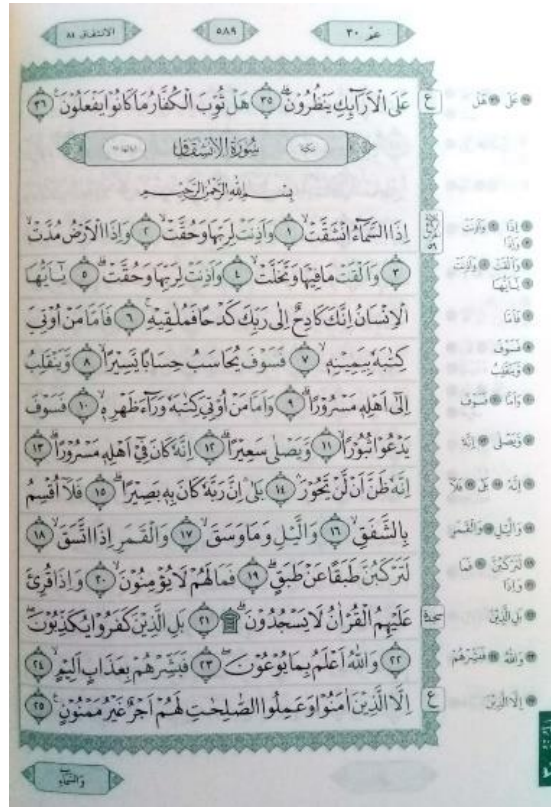 عم ٣٠
٥٨٩
الانشقاق ٨٤
عَلَى الْاَرَآئِكِ يَنْظُرُوْنَ ۝٣٥ هَلْ ثُوِّبَ الْكُفَّارُ مَا كَانُوْا يَفْعَلُوْنَ ۝٣٦
سُوْرَةُ الْاِنْشِقَاقِ
بِسْمِ اللّٰهِ الرَّحْمٰنِ الرَّحِيْمِ
اِذَا السَّمَآءُ انْشَقَّتْ ۝١ وَاَذِنَتْ لِرَبِّهَا وَحُقَّتْ ۝٢ وَاِذَا الْاَرْضُ مُدَّتْ
۝٣ وَاَلْقَتْ مَا فِيْهَا وَتَخَلَّتْ ۝٤ وَاَذِنَتْ لِرَبِّهَا وَحُقَّتْ ۝٥ يٰٓاَيُّهَا
الْاِنْسَانُ اِنَّكَ كَادِحٌ اِلٰى رَبِّكَ كَدْحًا فَمُلٰقِيْهِ ۝٦ فَاَمَّا مَنْ اُوْتِيَ
كِتٰبَهٗ بِيَمِيْنِهٖ ۝٧ فَسَوْفَ يُحَاسَبُ حِسَابًا يَّسِيْرًا ۝٨ وَّيَنْقَلِبُ
اِلٰٓى اَهْلِهٖ مَسْرُوْرًا ۝٩ وَاَمَّا مَنْ اُوْتِيَ كِتٰبَهٗ وَرَآءَ ظَهْرِهٖ ۝١٠ فَسَوْفَ
يَدْعُوْا ثُبُوْرًا ۝١١ وَّيَصْلٰى سَعِيْرًا ۝١٢ اِنَّهٗ كَانَ فِيْٓ اَهْلِهٖ مَسْرُوْرًا ۝١٣
اِنَّهٗ ظَنَّ اَنْ لَّنْ يَّحُوْرَ ۝١٤ بَلٰٓى اِنَّ رَبَّهٗ كَانَ بِهٖ بَصِيْرًا ۝١٥ فَلَآ اُقْسِمُ
بِالشَّفَقِ ۝١٦ وَالَّيْلِ وَمَا وَسَقَ ۝١٧ وَالْقَمَرِ اِذَا اتَّسَقَ ۝١٨
لَتَرْكَبُنَّ طَبَقًا عَنْ طَبَقٍ ۝١٩ فَمَا لَهُمْ لَا يُؤْمِنُوْنَ ۝٢٠ وَاِذَا قُرِئَ
عَلَيْهِمُ الْقُرْاٰنُ لَا يَسْجُدُوْنَ ۩ ۝٢١ بَلِ الَّذِيْنَ كَفَرُوْا يُكَذِّبُوْنَ
۝٢٢ وَاللّٰهُ اَعْلَمُ بِمَا يُوْعُوْنَ ۝٢٣ فَبَشِّرْهُمْ بِعَذَابٍ اَلِيْمٍ ۝٢٤
اِلَّا الَّذِيْنَ اٰمَنُوْا وَعَمِلُوا الصّٰلِحٰتِ لَهُمْ اَجْرٌ غَيْرُ مَمْنُوْنٍ ۝٢٥
ع
سجدة
ع
عَلَى هَلْ
اِذَا وَاَذِنَتْ
وَاِذَا
وَاَلْقَتْ وَاَذِنَتْ
يٰٓاَيُّهَا
فَاَمَّا
فَسَوْفَ
وَّيَنْقَلِبُ
وَاَمَّا فَسَوْفَ
وَّيَصْلٰى اِنَّهٗ
اِنَّهٗ بَلٰى فَلَآ
وَالَّيْلِ وَالْقَمَرِ
لَتَرْكَبُنَّ فَمَا
وَاِذَا
بَلِ الَّذِيْنَ
وَاللّٰهُ فَبَشِّرْهُمْ
اِلَّا الَّذِيْنَ
وَالسَّمَآءِ